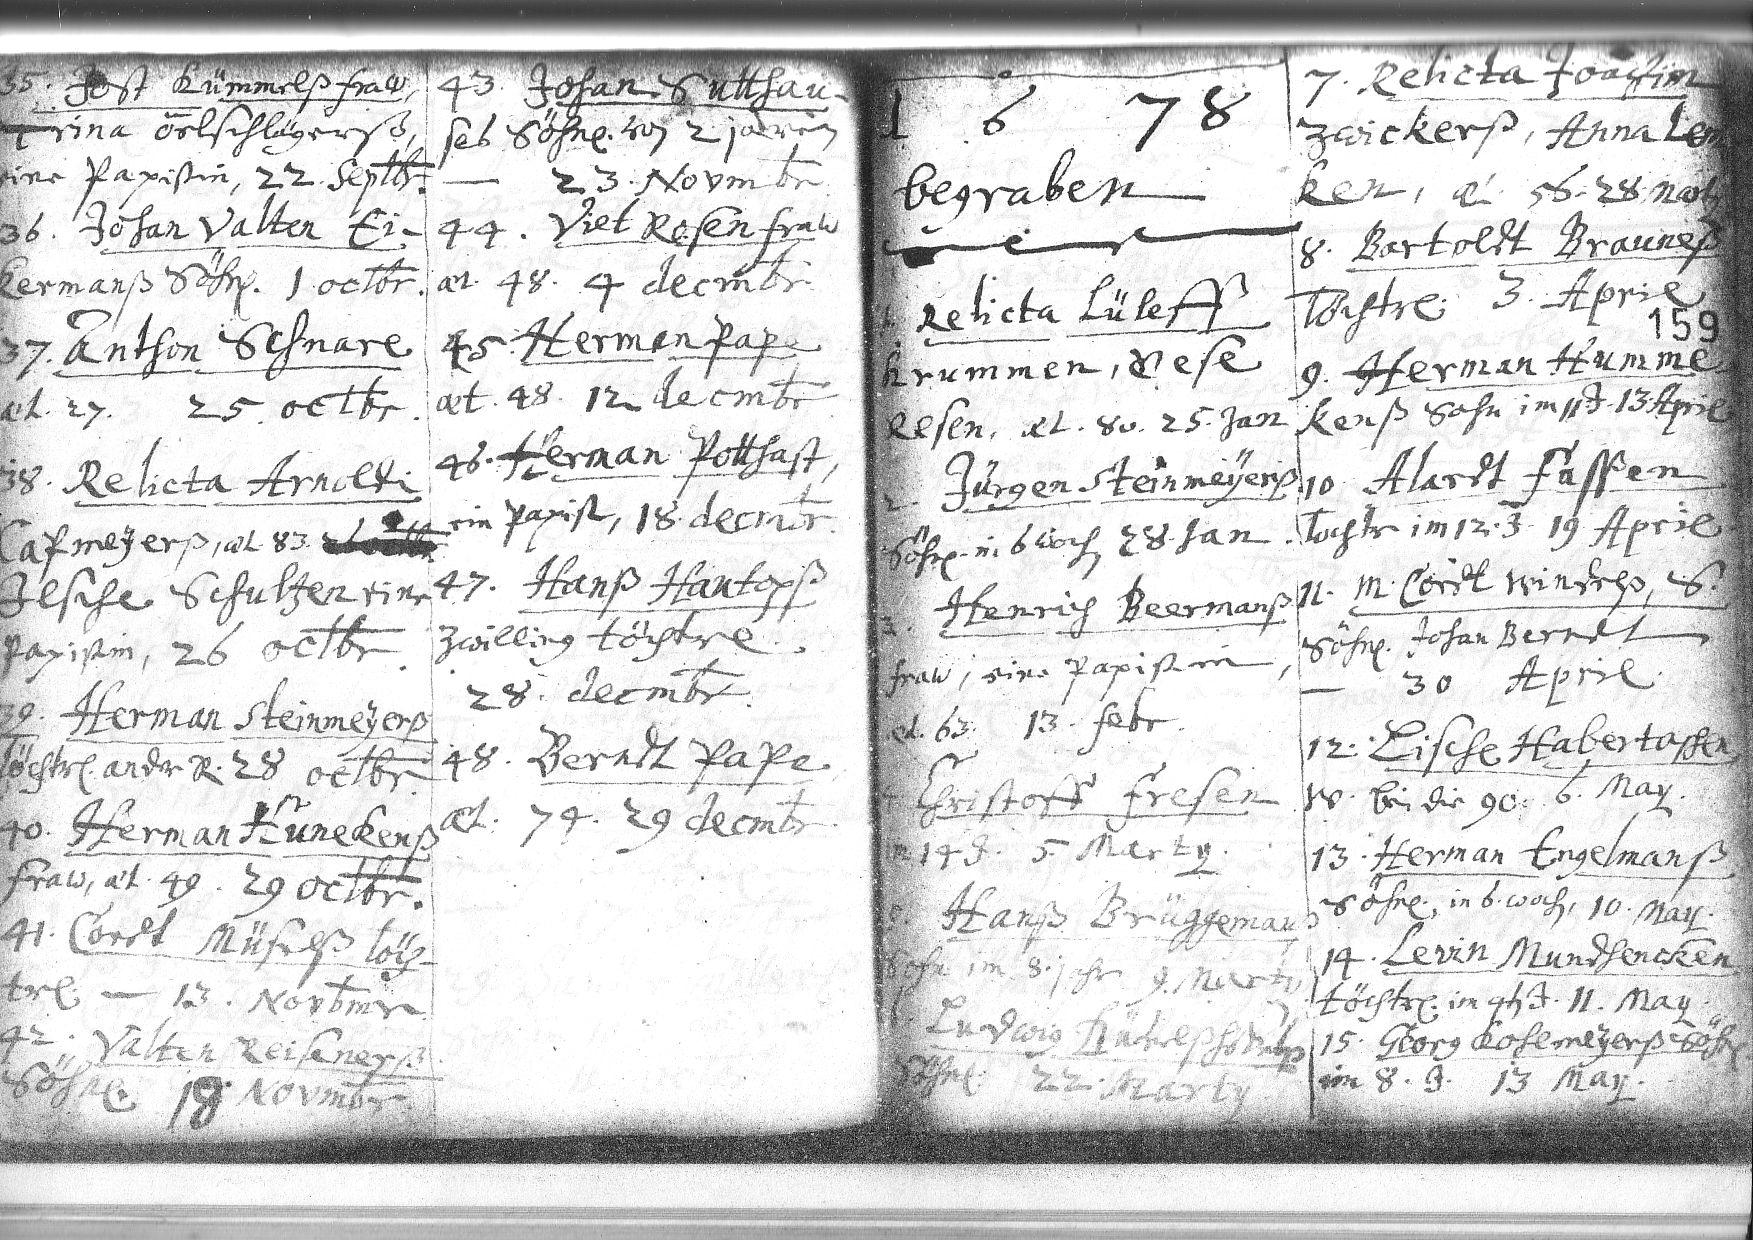 35. Jost Kümmelß fraw,
Trina Öelschlägerß,
eine Papistin, 22. Septbr.
36. Johan Valten Ei-
kermanß Söhnl. 1 octbr.
37. Anthon Schnare
æt. 27. 25 octbr.
38. Relicta Arnoldi
Cafmeyerß, æt. 83.
Ilsche Schultzen eine
Papistin, 26 octbr.
39. Herman Steinmeyerß
töchtrl. ander R. 28 octbr.
40. Herman Hunekenß
fraw, æt. 49. 29 octbr.
41. Cordt Müselß töch-
trl. — 13. Novbmr.
42. Valten Reiseners
Söhnl. 18 Novmbr.
43. Johan Sutthau-
seb Söhnl. von 2 jahren
— 23. Novmbr
44. Viet Rosen fraw
æt. 48. 4 decmbr.
45. Herman Pape
æt. 48. 12 decmbr
46. Herman Potthast,
ein Papist, 18. decmbr.
47. Hanß Hautopß
zwilling töchtrl.
28. decmbr.
48. Berndt Pape
æt. 74. 29 decmbr.
1678
begraben
1. Relicta Lüleff
Krummen, Gese
Resen, æt. 80. 25. Jan
2. Jürgen Steinmeyerß
Söhnl. in 6 woch, 28. Jan.
3. Henrich Beermanß
fraw, eine Papistin,
æt. 63. 13. febr.
4. Christoff Fresen
in 14 J. 5. Marty.
5. Hanß Brüggeman
Sohn im 8. jahr 9. Marty
Ludwig
Söhnl. 22. Marty
7. Relicta Joachim
Zwickerß, Anna Len
ken, æt. 56. 28. martz
8. Bartoldt Brauneß
Töchtrl. 3. April
159
9. Herman Humme
kenß Sohn im 11 J. 13 April
10 Alardt Fassen
Tochtr im 12. J. 19 April
11. M. Cordt Windelß, S.
Söhnl. Johan Berndt
— 30 April
12. Lische Habertassen
W. bei die 90. 6. May.
13. Herman Engelmanß
Söhnl. in 6. woch, 10. May.
14. Levin Mundhencken
töchtrl. im 4t J. 11. May.
15. Georg Kohlmeyerß Söhnl.
im 8. J. 13 May.